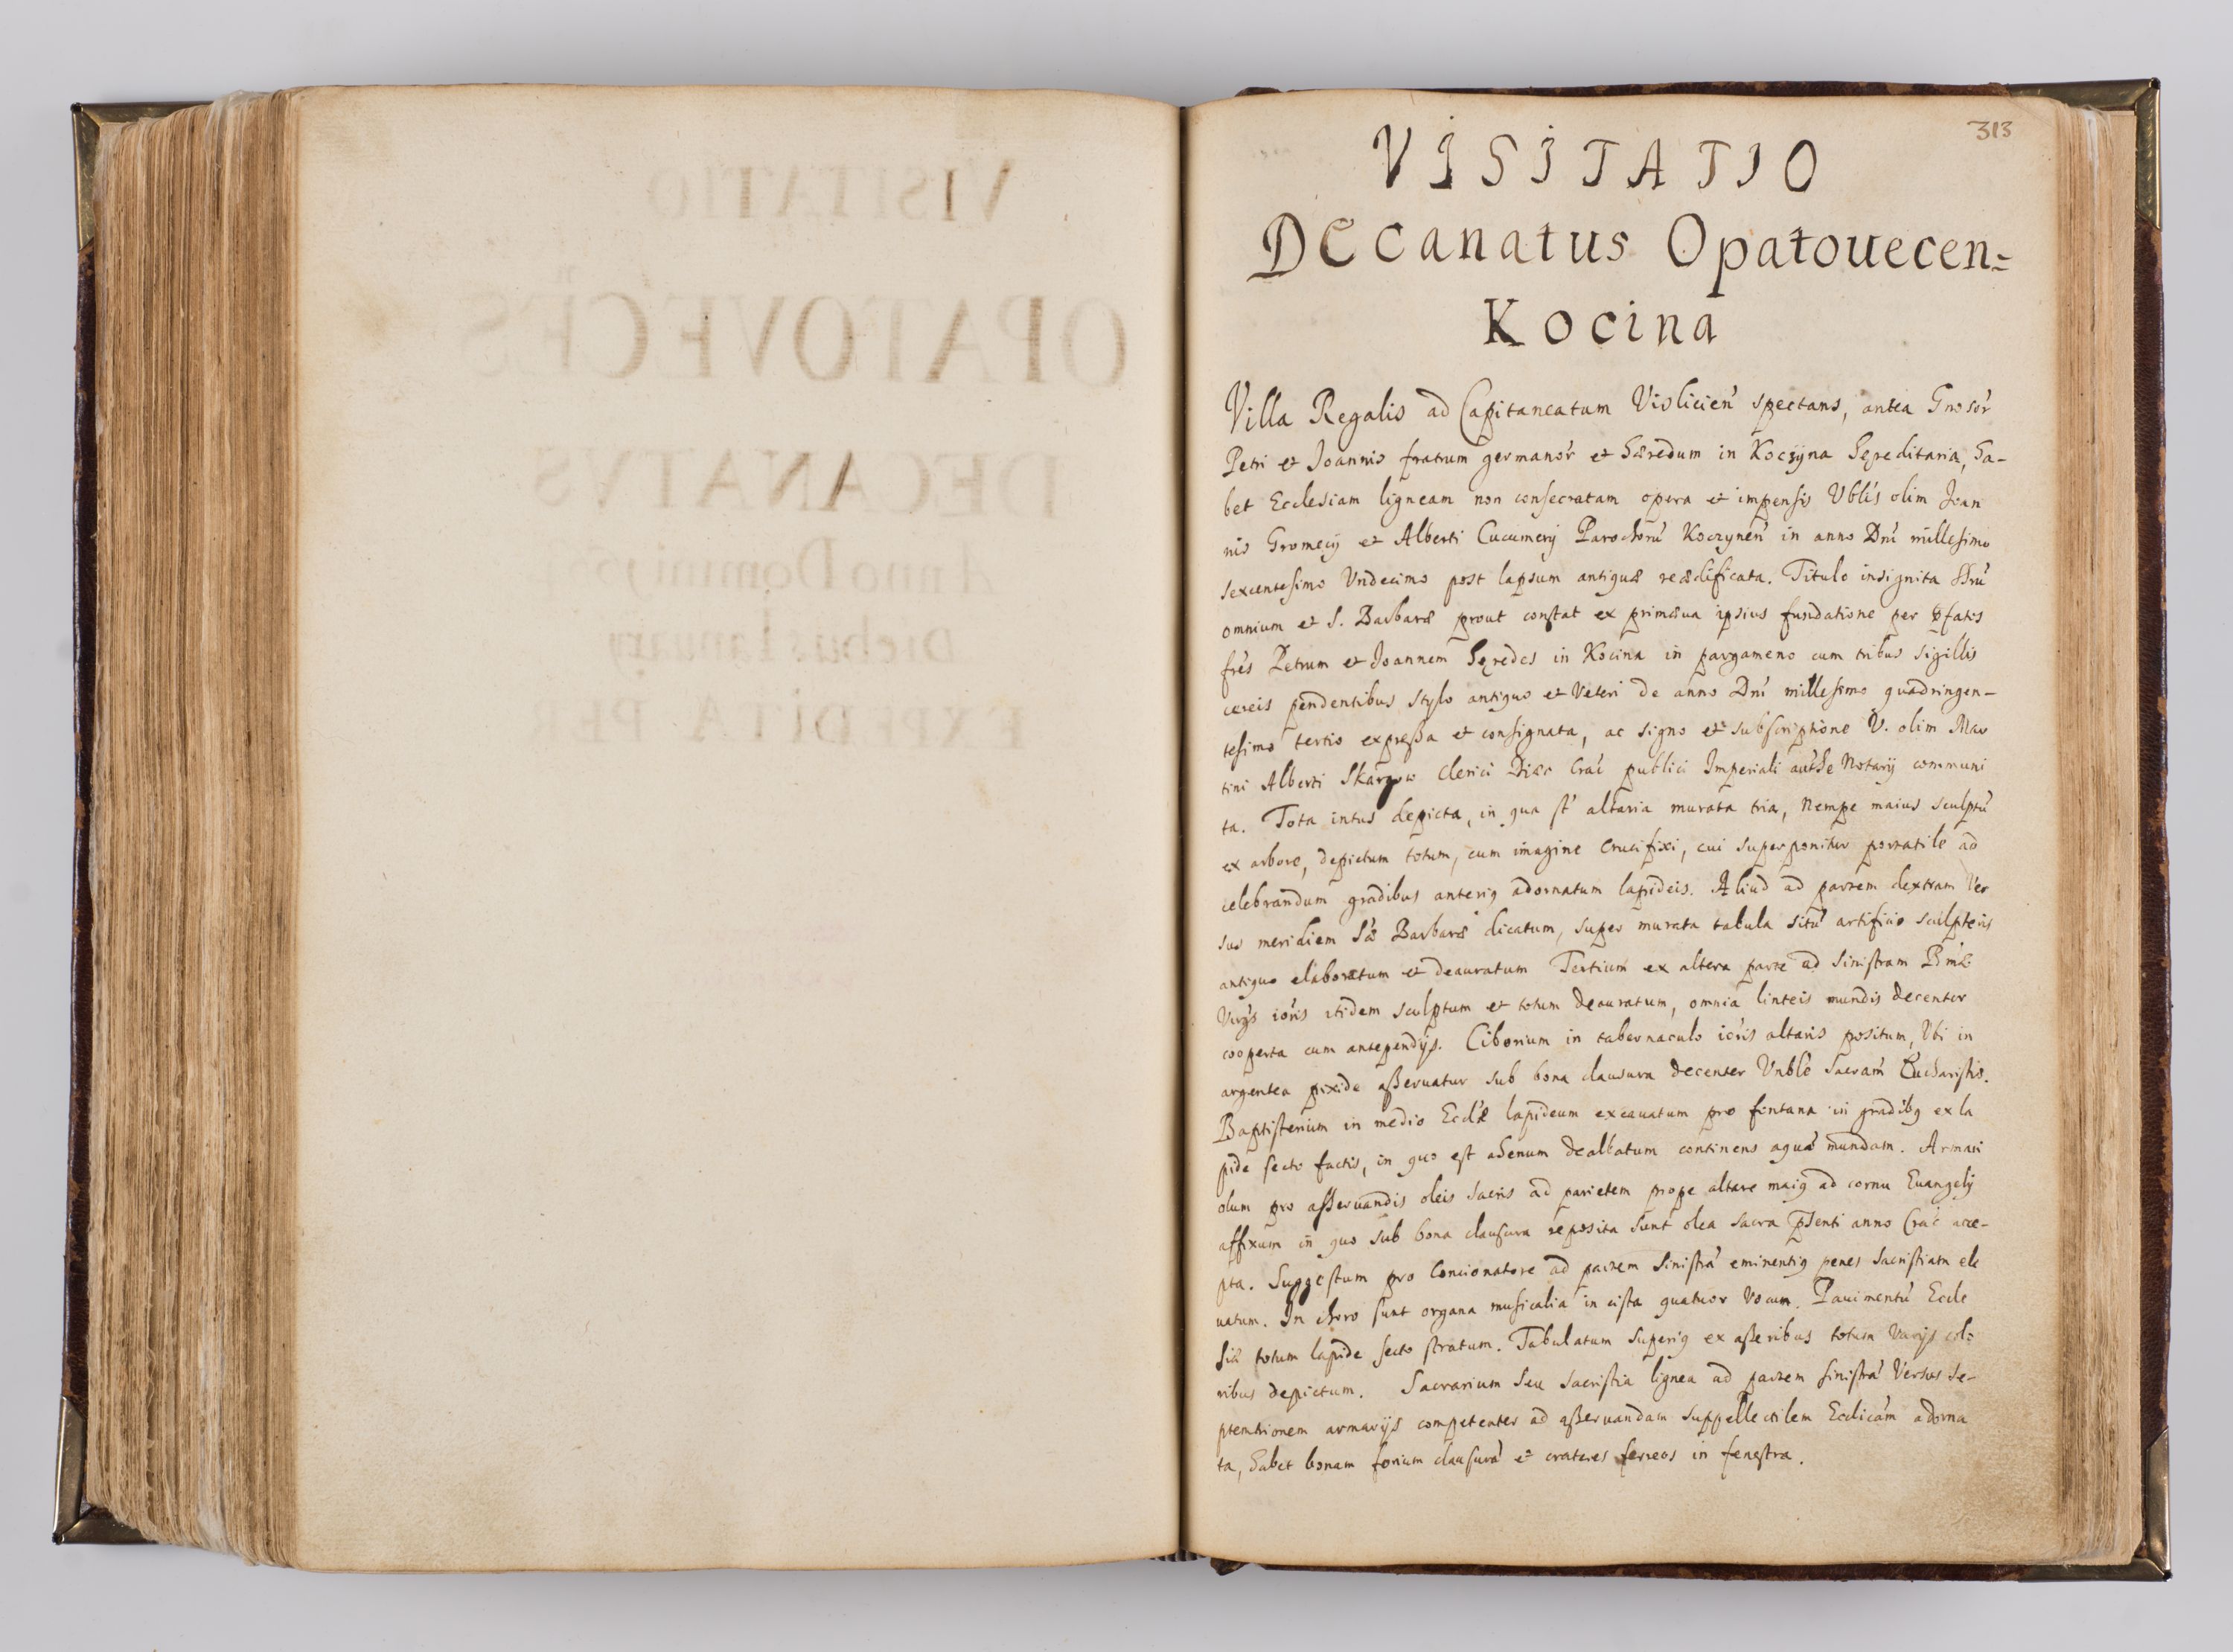 VISITATIO
OPATOVECEÑS
DECANATVS
Anno Domini
Diebus Ianuarij
EXPEDITA PER
313
VISITATIO
Decanatus Opatouecen=
Kocina
Villa Regalis ad Capitaneatum Vislicień spectans, antea Gnosór
Petri et Joannis fratrum germanór et Hæredum in Koczyna Hereditaria, Ha-
bet Ecclesiam ligneam non consecratam opera et impensis Vblís olim Joan
nis Gromecij et Alberti Cucumerij Parochorú Koczyneń in anno Dní millesimo
sexcentesimo Vndecimo post lapsum antiquæ reædificata. Titulo insignita SSrú
omnium et S. Barbaræ prout constat ex primæua ipsius fundatione per pfatos
frés Petrum et Joannem Hęredes in Kocina in pargameno cum tribus sigillis
cereis pendentibus stylo antiquo et Veteri de anno Dní millesimo quadringen-
tesimo tertio expressa et consignata, ac signo et subscriptione V. olim Mar
tini Alberti Skarzow Clerici Diæc Crać publici Imperiali authe Notarij communi
ta. Tota intus depicta, in qua st́ altaria murata tria, Nempe maius sculptú
ex arbore, depictum totum, cum imagine Crucifixi, cui superponitur portatile ad
celebrandum gradibus anterių adornatum lapideis. Aliud ad partem dextram Ver
sus meridiem Sǽ Barbaræ dicatum, super murata tabula sitú artificio sculptoris
antiquo elaboratum et deauratum Tertium ex altera parte ad Sinistram Bmǽ
Virgs ioris itidem sculptum et totum deauratum, omnia linteis mundis decenter
cooperta cum antependijs. Ciborium in tabernaculo ioris altaris positum, Vbi in
argentea pixide asseruatur sub bona clausura decenter Vnble Sacram Eucharistiæ.
Baptisterium in medio Eclæ lapideum excauatum pro fontana in gradibų ex la
pide secto factis, in quo est ahenum dealbatum continens aquá mundam. Armari
olum pro asseruandis oleis Sacris ad parietem prope altare maių ad cornu Euangelij
affixum in quo sub bona clausura reposita sunt olea sacra psenti anno Crać acce-
pta. Suggestum pro Concionatore ad partem Sinistrá eminentių penes Sacristiam ele
uatum. In choro sunt organa musicalia in cista quatuor Vocum. Pauimentú Eccle
siæ totum lapide secto stratum. Tabulatum superių ex asseribus totum Varijs colo
ribus depictum. Sacrarium seu Sacristia lignea ad partem sinistrá Versus Se-
ptemtrionem armarijs competenter ad asseruandam suppellectilem Ecclicám adorna
ta, habet bonam forium clausurá et crateres ferreos in fenestra.